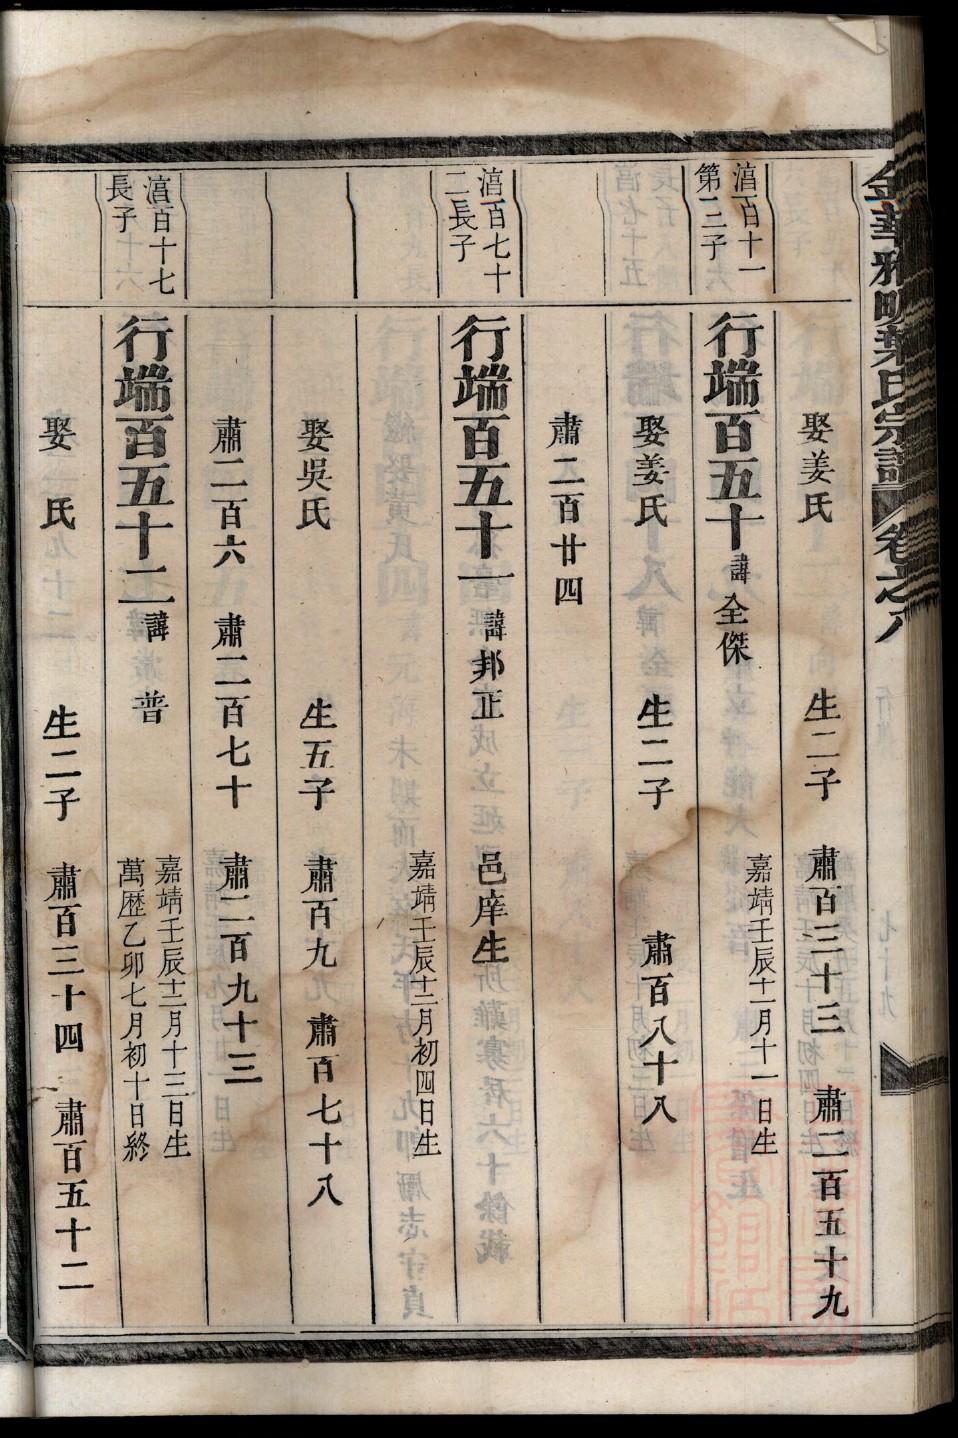 金華雅畈葉氏宗譜 卷之八
娶姜氏 生二子 肅百三十三 肅二百五十九
湻百十一
第二子
行端百五十 諱全傑
嘉靖壬辰十一月十一日生
娶姜氏 生二子 肅百八十八
肅二百廿四
湻百七十
二長子
行端百五十一 諱邦正 邑庠生
嘉靖壬辰十二月初四日生
娶吳氏 生五子 肅百九 肅百七十八
肅二百六 肅二百七十 肅二百九十三
湻百十七
長子
行端百五十二 諱普
嘉靖壬辰十二月十三日生
萬歷乙卯七月初十日終
娶 氏 生二子 肅百三十四 肅百五十二